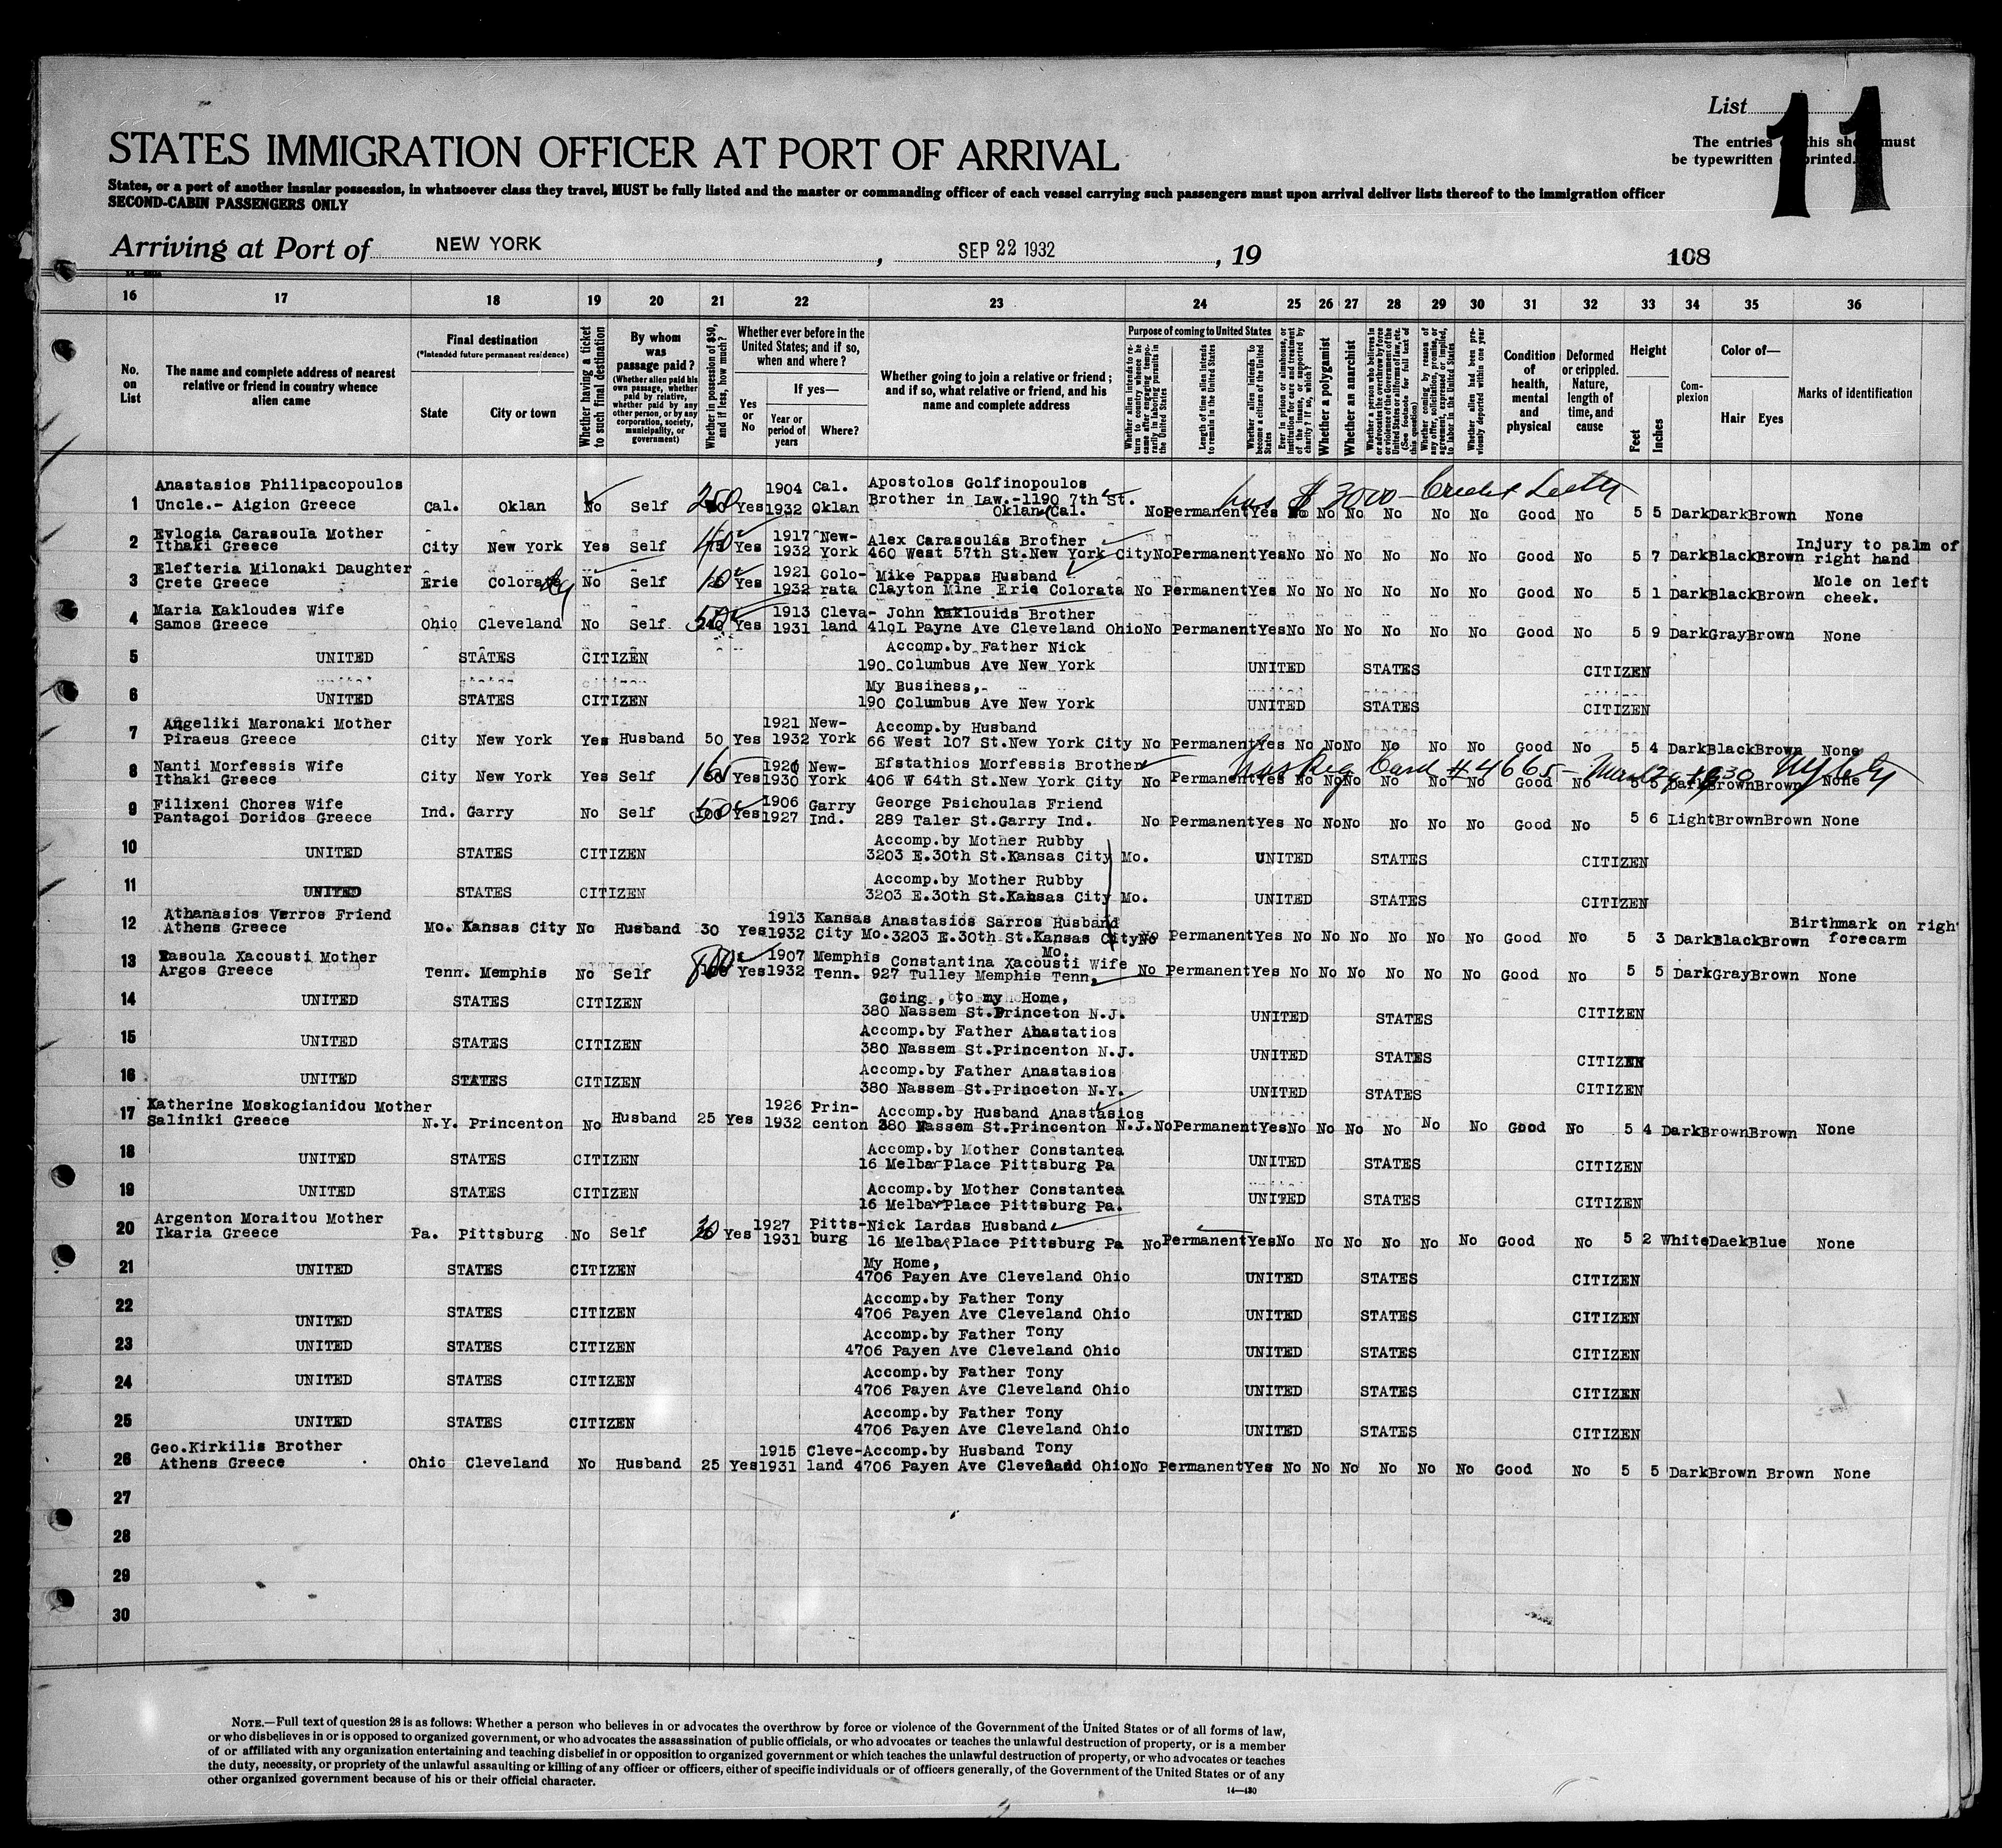 List 11
The entries this must
be typewritten printed.
STATES IMMIGRATION OFFICER AT PORT OF ARRIVAL
States, or a port of another insular possession, in whatsoever class they travel, MUST be fully listed and the master or commanding officer of each vessel carrying such passengers must upon arrival deliver lists thereof to the immigration officer
SECOND-CABIN PASSENGERS ONLY
Arriving at Port of NEW YORK , SEP 22 1932 , 19 108
16 17 18 19 20 21 22 23 24 25 26 27 28 29 30 31 32 33 34 35 36
No. on List
The name and complete address of nearest relative or friend in country whence alien came
Final destination
(*Intended future permanent residence)
State City or town
Whether having a ticket to such final destination
By whom was passage paid?
(Whether alien paid his own passage, whether paid by relative, whether paid by any other person, or by any corporation, society, municipality, or government)
Whether in possession of $50, and if less, how much?
Whether ever before in the United States; and if so, when and where?
Yes or No
If yes—
Year or period of years Where?
Whether going to join a relative or friend; and if so, what relative or friend, and his name and complete address
Purpose of coming to United States
Whether alien intends to return to country whence he came after engaging temporarily in laboring pursuits in the United States
Length of time alien intends to remain in the United States
Whether alien intends to become a citizen of the United States
Ever in prison or almshouse, or institution for care and treatment of the insane, or supported by charity? If so, which?
Whether a polygamist
Whether an anarchist
Whether a person who believes in or advocates the overthrow by force or violence of the Government of the United States or all forms of law, etc. (See footnote for full text of this question)
Whether coming by reason of any offer, solicitation, promise, or agreement, expressed or implied, to labor in the United States
Whether alien had been previously deported within one year
Condition of health, mental and physical
Deformed or crippled. Nature, length of time, and cause
Height
Feet Inches
Complexion
Color of—
Hair Eyes
Marks of identification
Anastasios Philipacopoulos 1904 Cal. Apostolos Golfinopoulos has $ 3000 — Credit Letter
1 Uncle.- Aigion Greece Cal. Oklan No Self 250 Yes 1932 Oklan Brother in Law.-1190 7th St.
Oklan Cal. No Permanent Yes No No No No No No Good No 5 5 Dark Dark Brown None
2 Evlogia Carasoula Mother 1917 New- Alex Carasoulas Brother Injury to palm of
Ithaki Greece City New York Yes Self Yes 1932 York 460 West 57th St.New York City No Permanent Yes No No No No No No Good No 5 7 Dark Black Brown right hand
3 Elefteria Milonaki Daughter 1921 Colo- Mike Pappas Husband Mole on left
Crete Greece Erie Colorata No Self Yes 1932 rata Clayton Mine Erie Colorata No Permanent Yes No No No No No No Good No 5 1 Dark Black Brown cheek.
4 Maria Kakloudes Wife 1913 Cleva- John Kaklouids Brother
Samos Greece Ohio Cleveland No Self Yes 1931 land 410L Payne Ave Cleveland Ohio No Permanent Yes No No No No No No Good No 5 9 Dark Gray Brown None
Accomp.by Father Nick
5 UNITED STATES CITIZEN 190 Columbus Ave New York UNITED STATES CITIZEN
My Business,-
6 UNITED STATES CITIZEN 190 Columbus Ave New York UNITED STATES CITIZEN
Angeliki Maronaki Mother 1921 New- Accomp.by Husband
7 Piraeus Greece City New York Yes Husband 50 Yes 1932 York 66 West 107 St.New York City No Permanent Yes No No No No No No Good No 5 4 Dark Black Brown None
8 Nanti Morfessis Wife New- Efstathios Morfessis Brother has Reg Card #4665 —
Ithaki Greece City New York Yes Self 165 Yes 1930 York 406 W 64th St.New York City No Permanent Yes No No No No No No Good No 5 5 Dark Brown Brown None
9 Filixeni Chores Wife 1906 Garry George Psichoulas Friend
Pantagoi Doridos Greece Ind. Garry No Self Yes 1927 Ind. 289 Taler St.Garry Ind. No Permanent Yes No No No No No No Good No 5 6 Light Brown Brown None
Accomp.by Mother Rubby
10 UNITED STATES CITIZEN 3203 E.30th St.Kansas City Mo. UNITED STATES CITIZEN
Accomp.by Mother Rubby
11 UNITED STATES CITIZEN 3203 E.30th St.Kansas City Mo. UNITED STATES CITIZEN
Athanasios Verros Friend 1913 Kansas Anastasios Sarros Husband Birthmark on righ
12 Athens Greece Mo. Kansas City No Husband 30 Yes 1932 City Mo. 3203 E.30th St.Kansas City No Permanent Yes No No No No No No Good No 5 3 Dark Black Brown forecarm
Mo.
13 Rasoula Xacousti Mother 1907 Memphis Constantina Xacousti Wife
Argos Greece Tenn. Memphis No Self Yes 1932 Tenn. 927 Tulley Memphis Tenn. No Permanent Yes No No No No No No Good No 5 5 Dark Gray Brown None
Going, to my Home,
14 UNITED STATES CITIZEN 380 Nassem St.Princeton N.J. UNITED STATES CITIZEN
Accomp.by Father Anastatios
15 UNITED STATES CITIZEN 380 Nassem St.Princenton N.J. UNITED STATES CITIZEN
Accomp.by Father Anastasios
16 UNITED STATES CITIZEN 380 Nassem St.Princeton N.Y. UNITED STATES CITIZEN
17 Katherine Moskogianidou Mother 1926 Prin- Accomp.by Husband Anastasios
Saliniki Greece N.Y. Princenton No Husband 25 Yes 1932 centon 380 Nassem St.Princenton N.J. No Permanent Yes No No No No No No Good No 5 4 Dark Brown Brown None
Accomp.by Mother Constantea
18 UNITED STATES CITIZEN 16 Melbar Place Pittsburg Pa UNITED STATES CITIZEN
Accomp.by Mother Constantea
19 UNITED STATES CITIZEN 16 Melbar Place Pittsburg Pa. UNITED STATES CITIZEN
20 Argenton Moraitou Mother 1927 Pitts- Nick Lardas Husband
Ikaria Greece Pa. Pittsburg No Self 30 Yes 1931 burg 16 Melbar Place Pittsburg Pa No Permanent Yes No No No No No No Good No 5 2 White Daek Blue None
My Home,
21 UNITED STATES CITIZEN 4706 Payen Ave Cleveland Ohio UNITED STATES CITIZEN
Accomp.by Father Tony
22 UNITED STATES CITIZEN 4706 Payen Ave Cleveland Ohio UNITED STATES CITIZEN
Accomp.by Father Tony
23 UNITED STATES CITIZEN 4706 Payen Ave Cleveland Ohio UNITED STATES CITIZEN
Accomp.by Father Tony
24 UNITED STATES CITIZEN 4706 Payen Ave Cleveland Ohio UNITED STATES CITIZEN
Accomp.by Father Tony
25 UNITED STATES CITIZEN 4706 Payen Ave Cleveland Ohio UNITED STATES CITIZEN
Geo.Kirkilis Brother 1915 Cleve- Accomp.by Husband Tony
26 Athens Greece Ohio Cleveland No Husband 25 Yes 1931 land 4706 Payen Ave Cleveland Ohio No Permanent Yes No No No No No No Good No 5 5 Dark Brown Brown None
27
28
29
30
NOTE.—Full text of question 28 is as follows: Whether a person who believes in or advocates the overthrow by force or violence of the Government of the United States or of all forms of law,
or who disbelieves in or is opposed to organized government, or who advocates the assassination of public officials, or who advocates or teaches the unlawful destruction of property, or is a member
of or affiliated with any organization entertaining and teaching disbelief in or opposition to organized government or which teaches the unlawful destruction of property, or who advocates or teaches
the duty, necessity, or propriety of the unlawful assaulting or killing of any officer or officers, either of specific individuals or of officers generally, of the Government of the United States or of any
other organized government because of his or their official character.
14—430